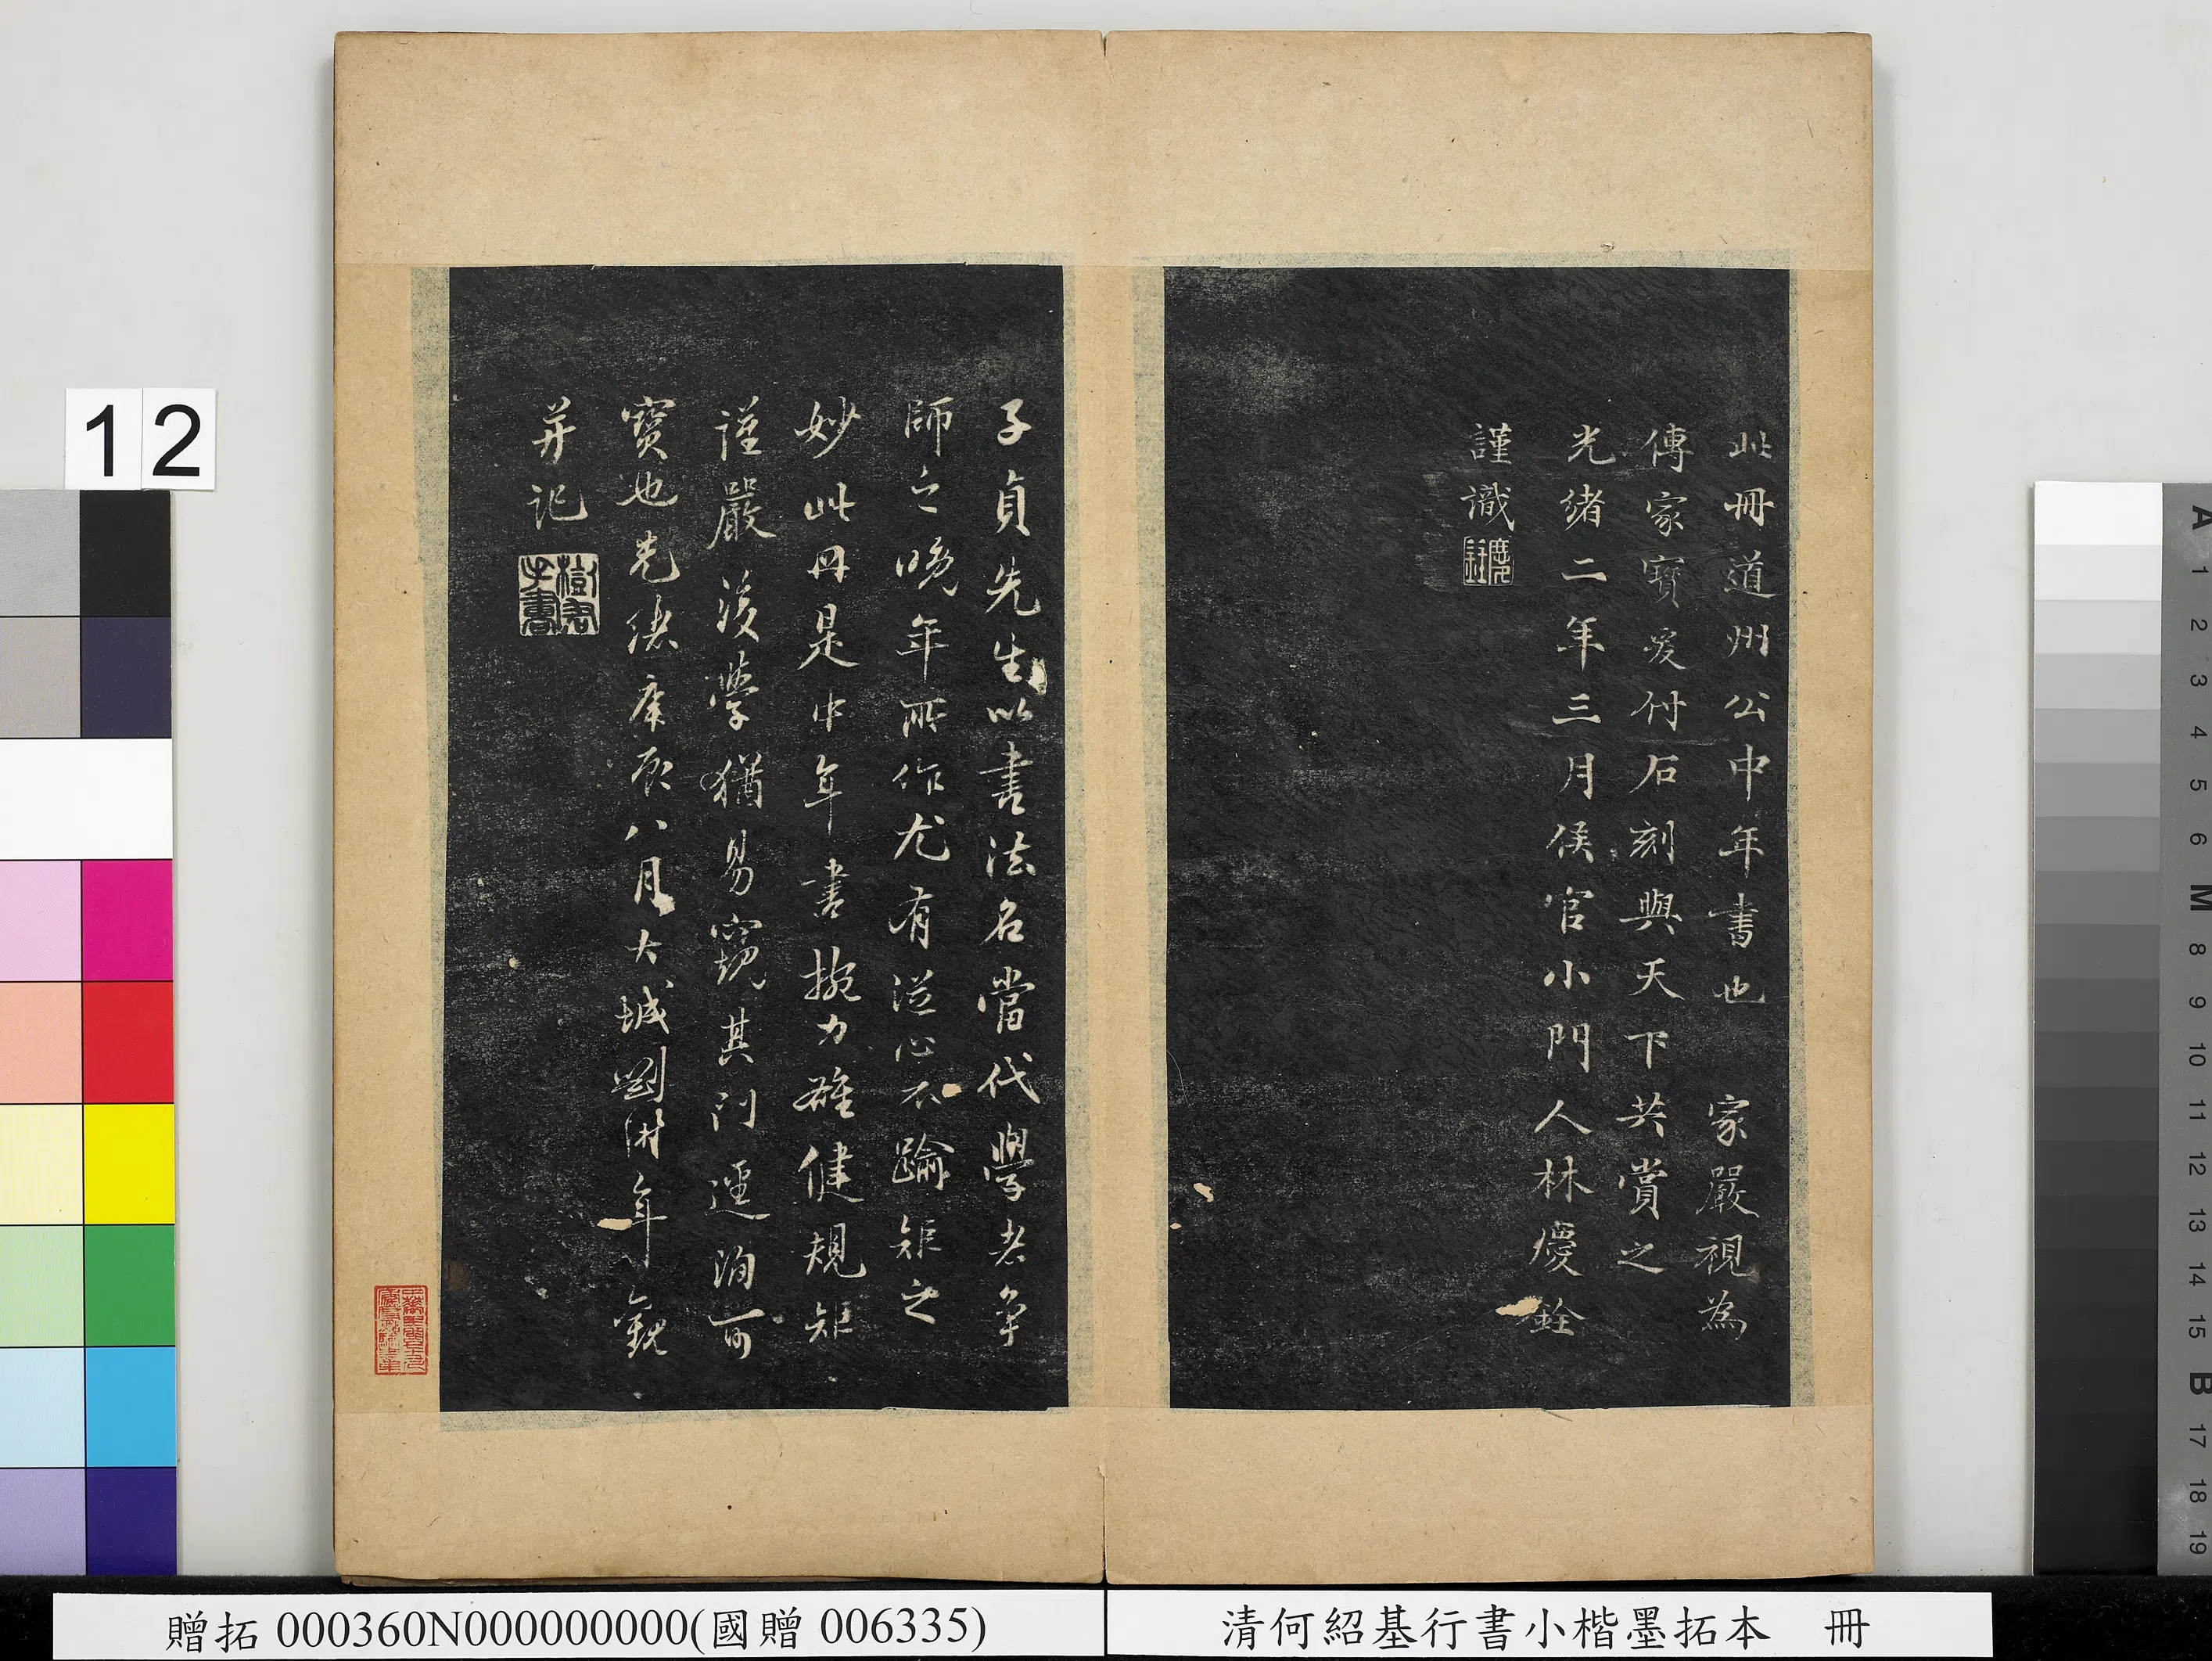 此冊道州公中年書也 家嚴視為
傳家寶爰付石刻與天下共賞之
光緒二年三月侯官小門人林慶銓
謹識
慶銓
子貞先生以書法名當代學者爭
師之晚年所作尤有從心不踰矩之
妙此冊是中年書捥力雄健規矩
謹嚴後學猶易窺其門逕洵可
寶也光緒庚辰八月大城劉溎年觀
并記
12
贈拓 000360N000000000(國贈 006335)
清何紹基行書小楷墨拓本 冊
A 1 2 3 4 5 6 M 8 9 10 11 12 13 14 15 B 17 18 19